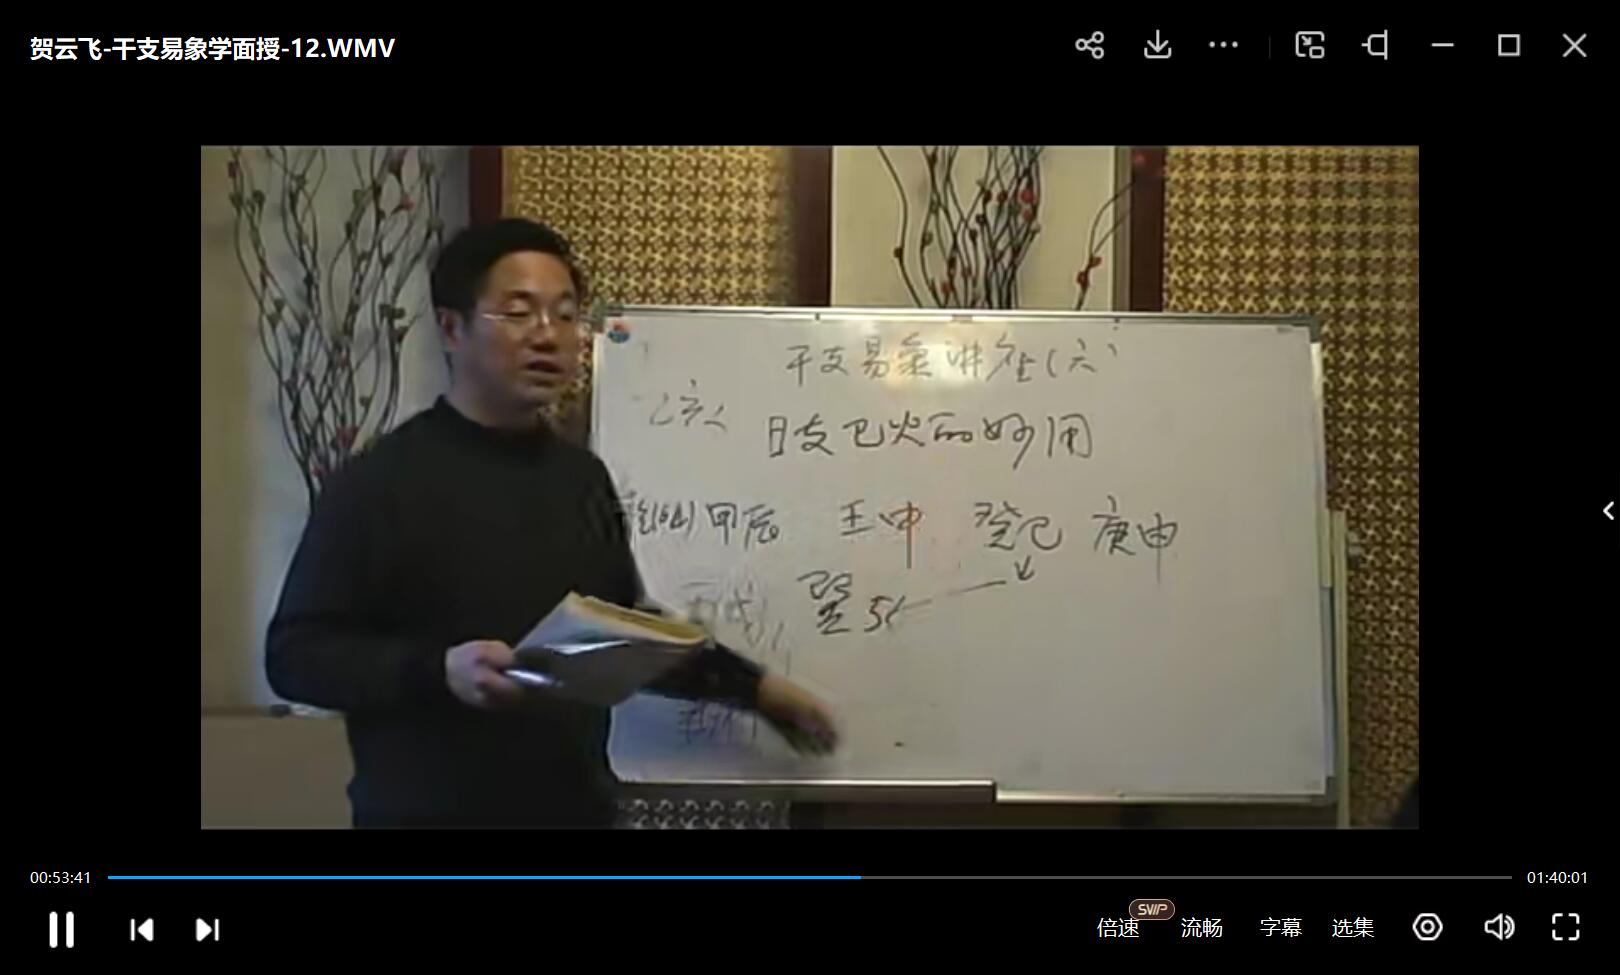 贺云飞-干支易象学面授-12.WMV
干支易象讲座(六)
日支巳火的妙用
甲辰 壬申 癸巳 庚申
00:53:41
01:40:01
SVIP
倍速 流畅 字幕 选集